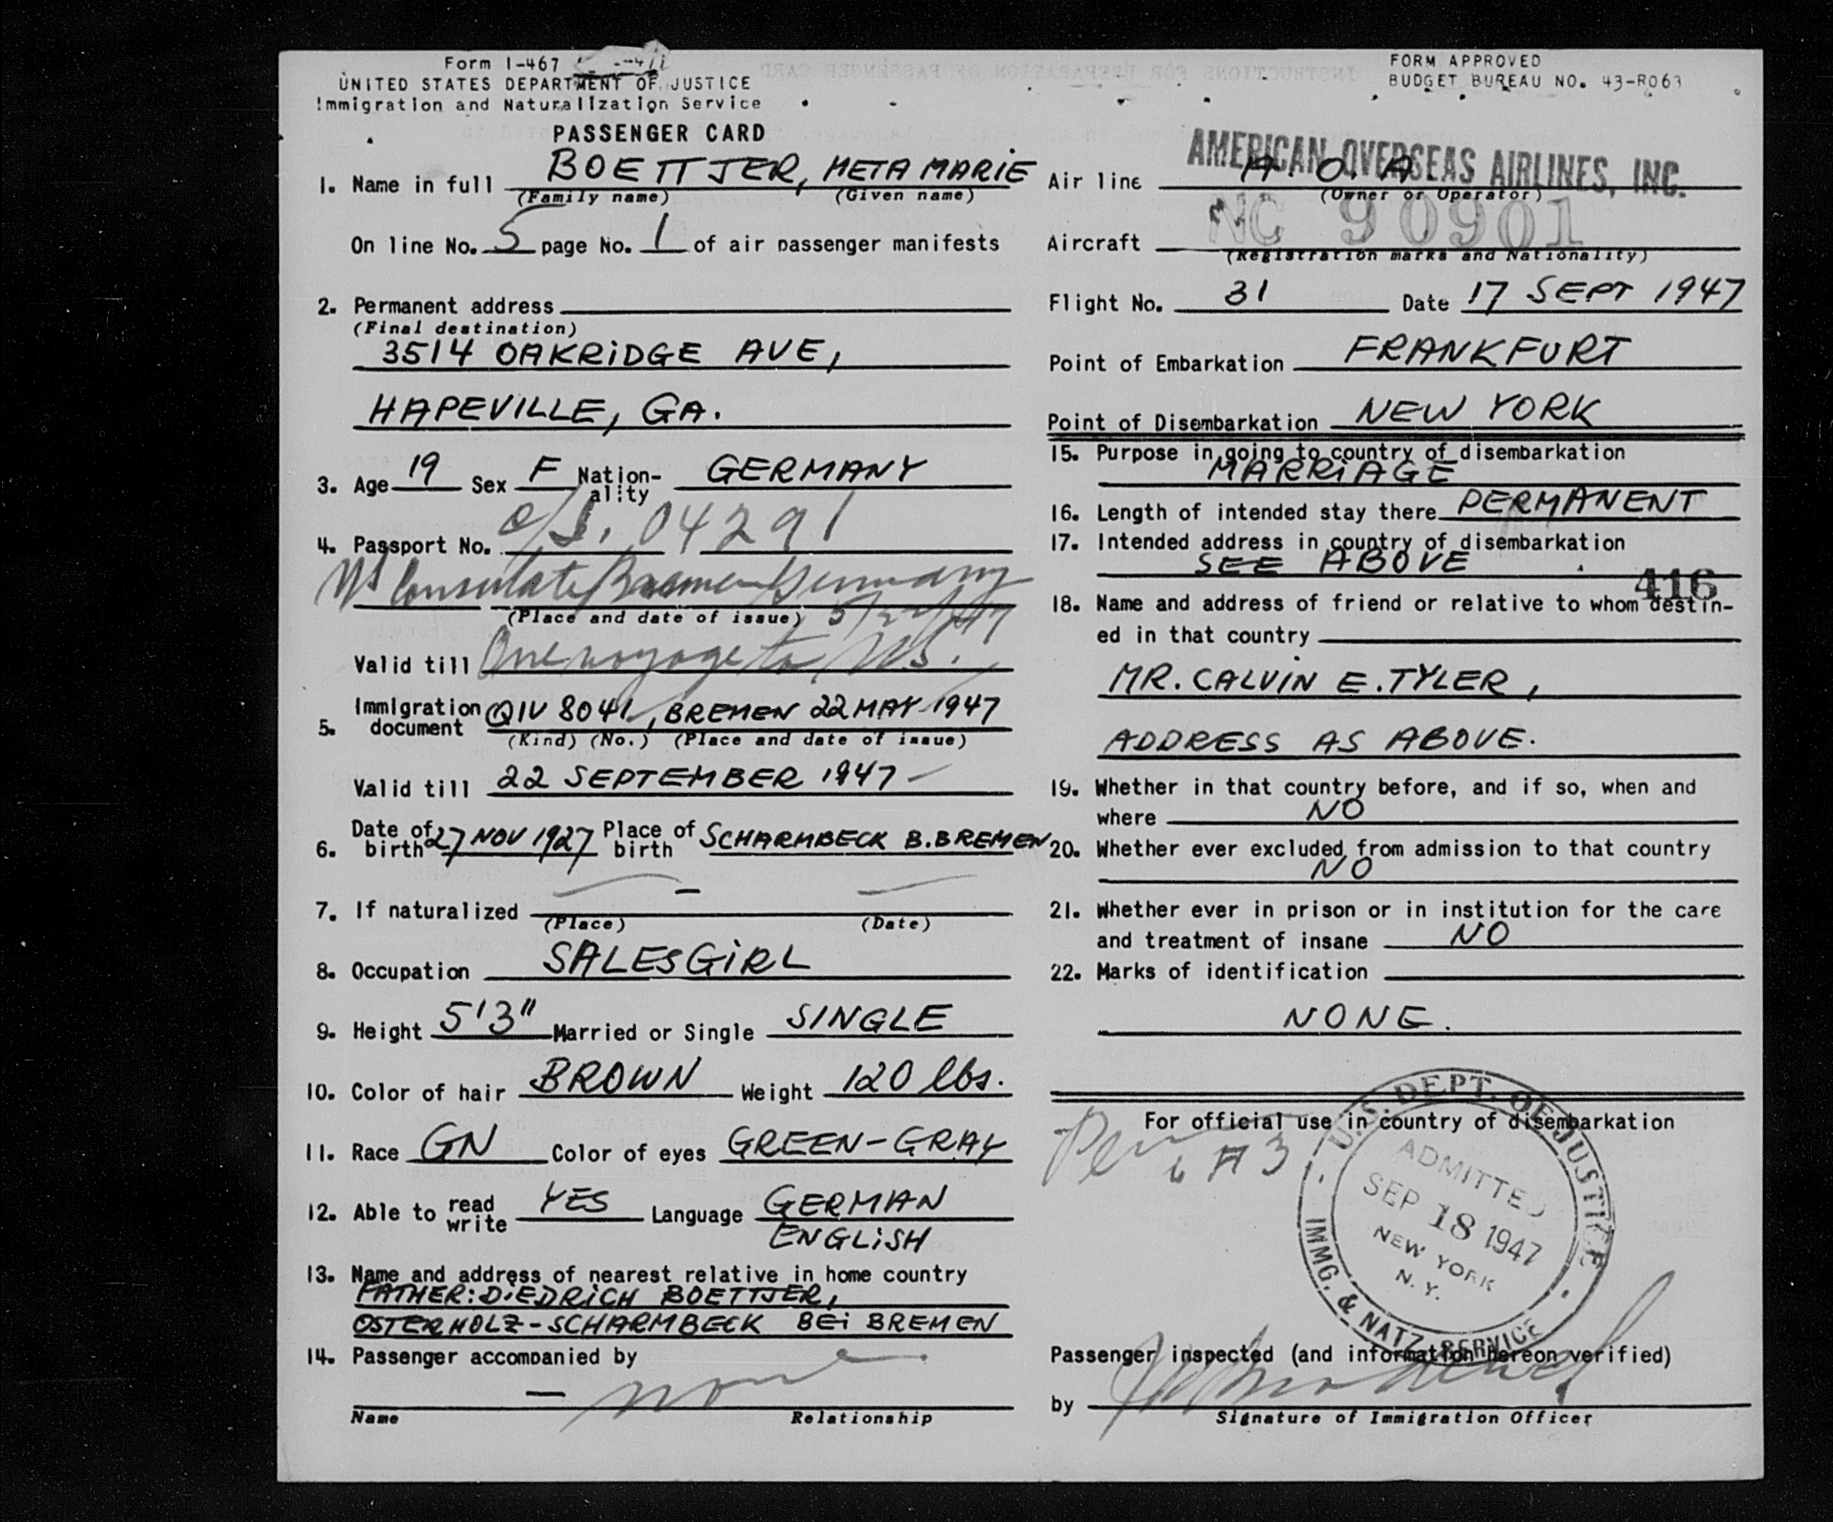 Form I-467
UNITED STATES DEPARTMENT OF JUSTICE
Immigration and Naturalization Service
PASSENGER CARD
1. Name in full BOETTJER, META MARIE
(Family name) (Given name)
On line No. 5 page No. 1 of air passenger manifests
2. Permanent address
(Final destination)
3514 OAKRIDGE AVE,
HAPEVILLE, GA.
3. Age 19 Sex F Nation-ality GERMANY
4. Passport No. 04291
US Consulate Bremen Germany
(Place and date of issue) 5/22/47
Valid till One voyage to US.
5. Immigration document QIV 8041, BREMEN 22 MAY 1947
(Kind) (No.) (Place and date of issue)
Valid till 22 SEPTEMBER 1947
6. Date of birth 27 NOV 1927 Place of birth SCHARMBECK B. BREMEN
7. If naturalized —
(Place) (Date)
8. Occupation SALESGIRL
9. Height 5'3" Married or Single SINGLE
10. Color of hair BROWN Weight 120 lbs.
11. Race GN Color of eyes GREEN-GRAY
12. Able to read write YES Language GERMAN
ENGLISH
13. Name and address of nearest relative in home country
FATHER: DIEDRICH BOETTJER,
OSTERHOLZ-SCHARMBECK BEI BREMEN
14. Passenger accompanied by
— none
Name Relationship
FORM APPROVED
BUDGET BUREAU NO. 43-R063
AMERICAN OVERSEAS AIRLINES, INC.
Air line A.O.A.
(Owner or Operator)
Aircraft NC 90901
(Registration marks and Nationality)
Flight No. 31 Date 17 SEPT 1947
Point of Embarkation FRANKFURT
Point of Disembarkation NEW YORK
15. Purpose in going to country of disembarkation
MARRIAGE
16. Length of intended stay there PERMANENT
17. Intended address in country of disembarkation
SEE ABOVE
416
18. Name and address of friend or relative to whom destin-
ed in that country
MR. CALVIN E. TYLER,
ADDRESS AS ABOVE.
19. Whether in that country before, and if so, when and
where NO
20. Whether ever excluded from admission to that country
NO
21. Whether ever in prison or in institution for the care
and treatment of insane NO
22. Marks of identification
NONE.
For official use in country of disembarkation
U.S. DEPT. OF JUSTICE
ADMITTED
SEP 18 1947
NEW YORK
N.Y.
IMMG. & NATZ. SERVICE
Passenger inspected (and information hereon verified)
by
Signature of Immigration Officer